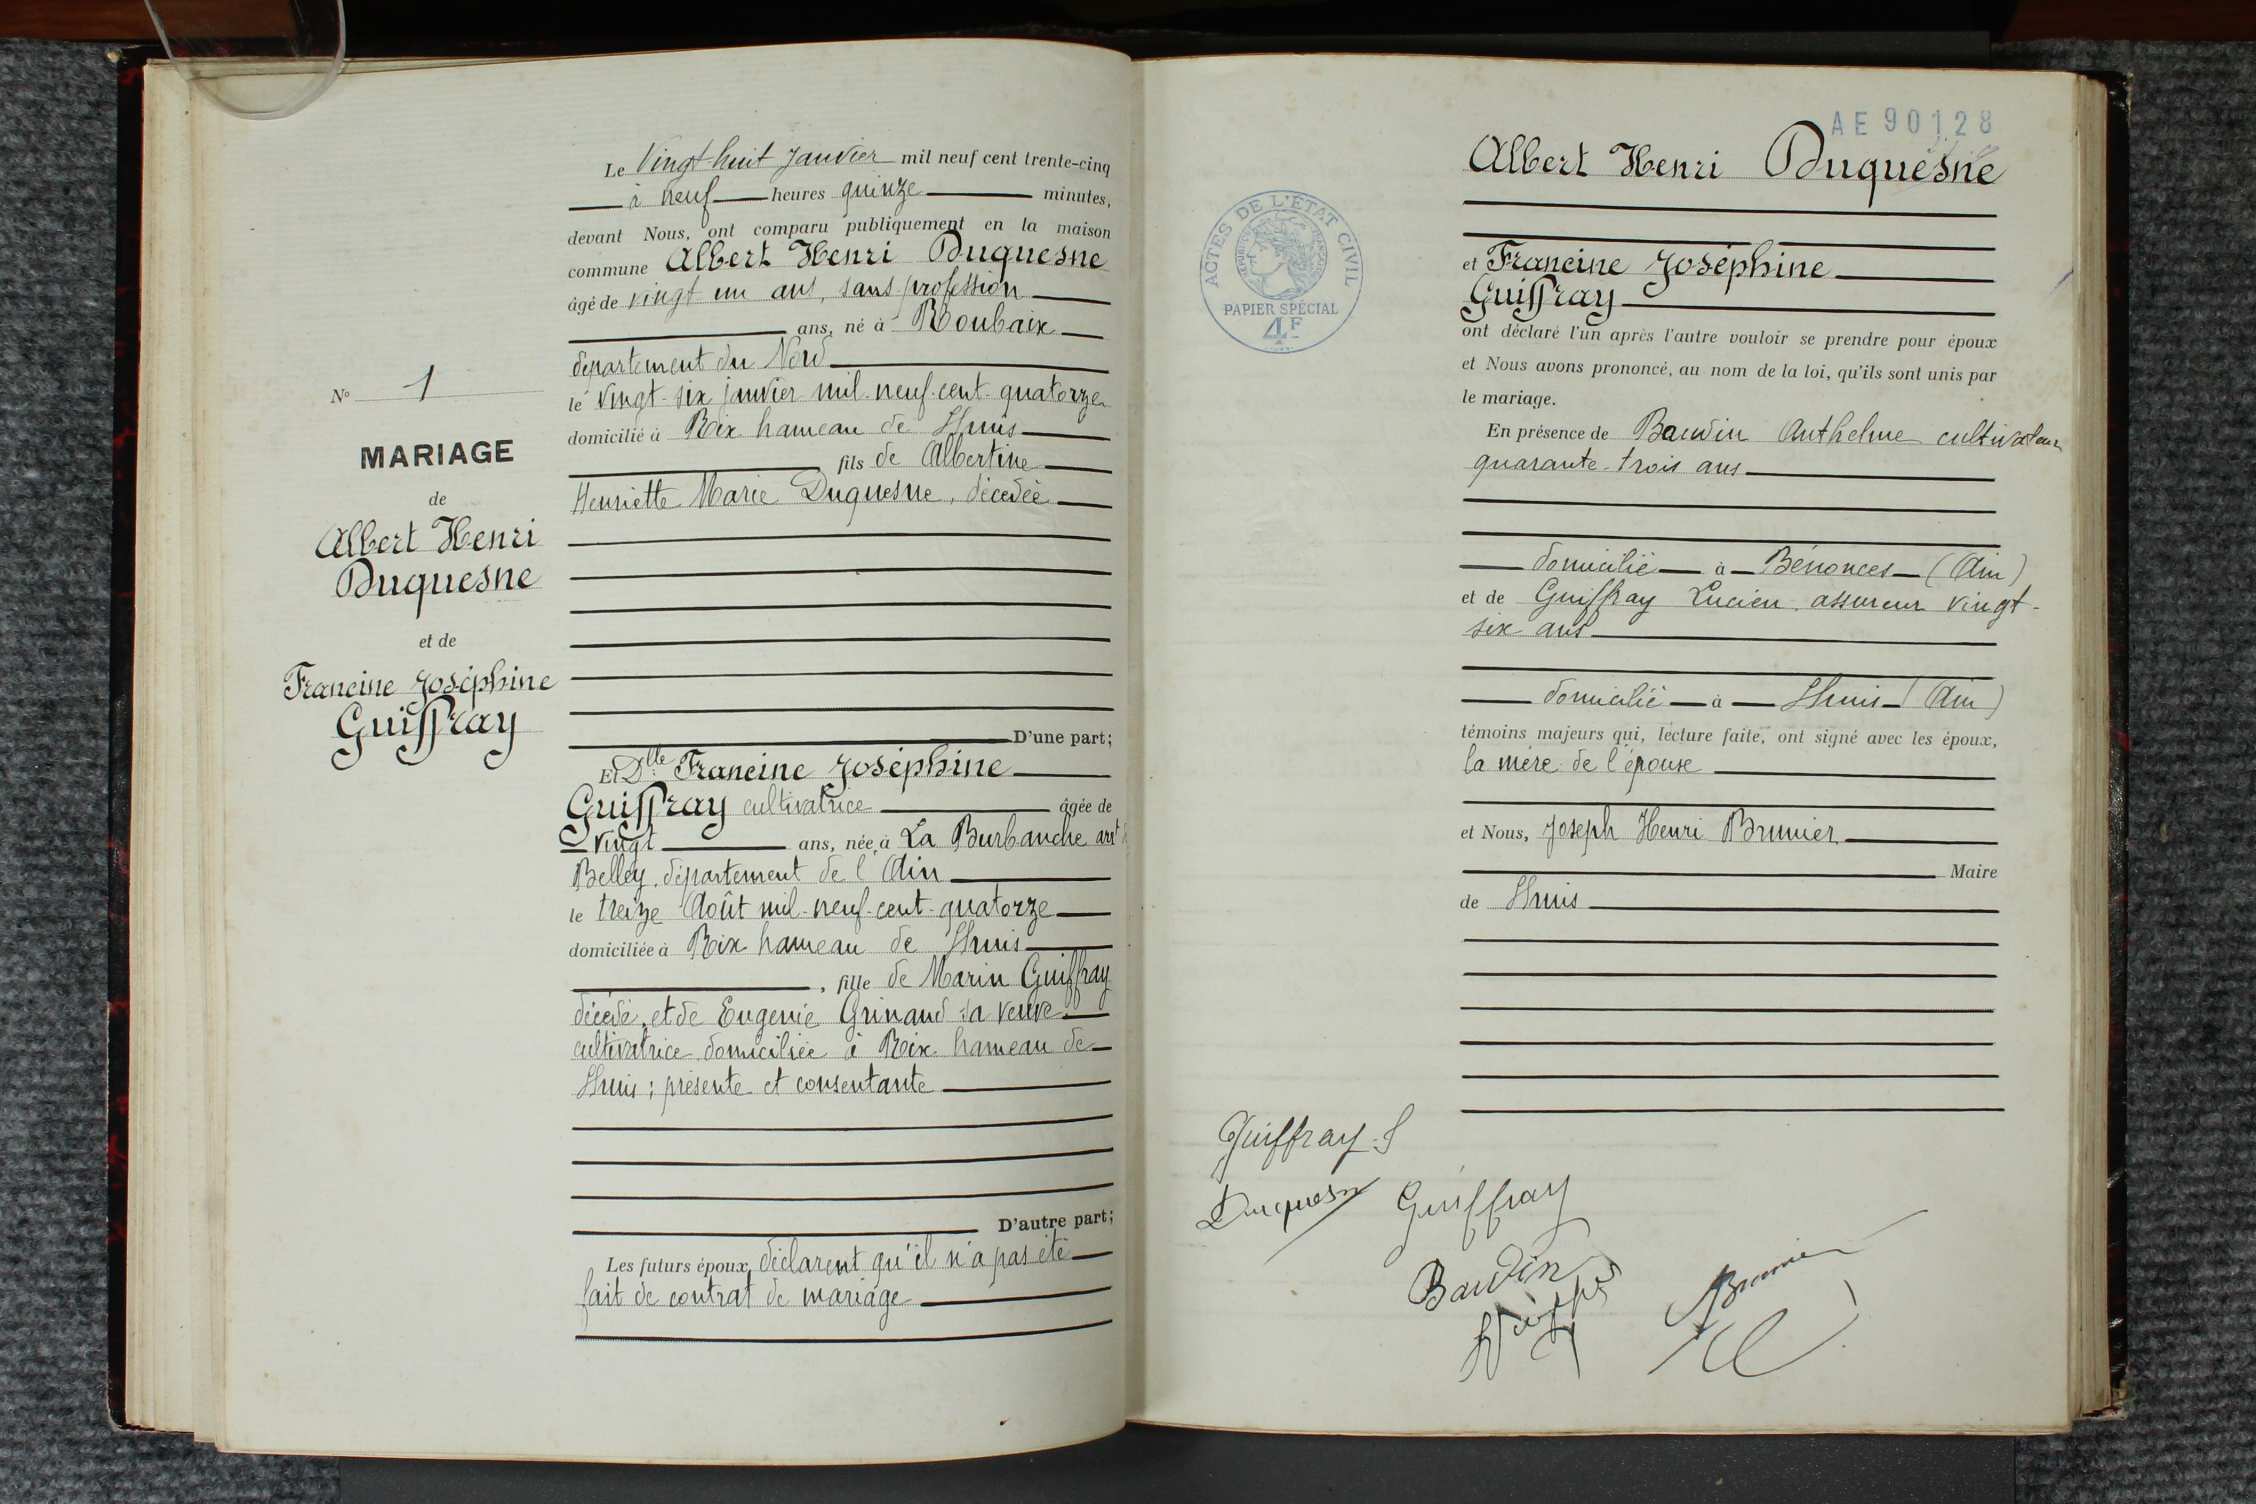 N° 1
MARIAGE
de
Albert Henri
Duquesne
et de
Francine Joséphine
Guiffray
Le Vingt huit Janvier mil neuf cent trente-cinq
à neuf heures quinze minutes,
devant Nous, ont comparu publiquement en la maison
commune Albert Henri Duquesne
âgé de vingt un ans, sans profession
ans, né à Roubaix
département du Nord
le vingt-six janvier mil-neuf-cent-quatorze
domicilié à Rix hameau de Lhuis
fils de Albertine
Henriette Marie Duquesne, décedée
D'une part;
Et Dlle Francine Joséphine
Guiffray cultivatrice âgée de
vingt ans, née à La Burbanche arrt
Belley, département de l'Ain
le treize Août mil-neuf-cent-quatorze
domiciliée à Rix hameau de Lhuis
, fille de Marin Guiffray
décédé, et de Eugenie Grinand sa veuve
cultivatrice domiciliée à Rix hameau de
Lhuis; présente et consentante
D'autre part;
Les futurs époux déclarent qu'il n'a pas été
fait de contrat de mariage
AE 90128
Albert Henri Duquesne
ACTES DE L'ÉTAT CIVIL
RÉPUBLIQUE FRANÇAISE
PAPIER SPÉCIAL
4F
et Francine Joséphine
Guiffray
ont déclaré l'un après l'autre vouloir se prendre pour époux
et Nous avons prononcé, au nom de la loi, qu'ils sont unis par
le mariage.
En présence de Baudin Anthelme cultivateur
quarante-trois ans
domicilié à Bénonces (Ain)
et de Guiffray Lucien assureur vingt-
six ans
domicilié à Lhuis (Ain)
témoins majeurs qui, lecture faite, ont signé avec les époux,
la mère de l'épouse
et Nous, Joseph Henri Brunier
Maire
de Lhuis
Guiffray
Duquesn
Guiffray
Baudin
Brunier